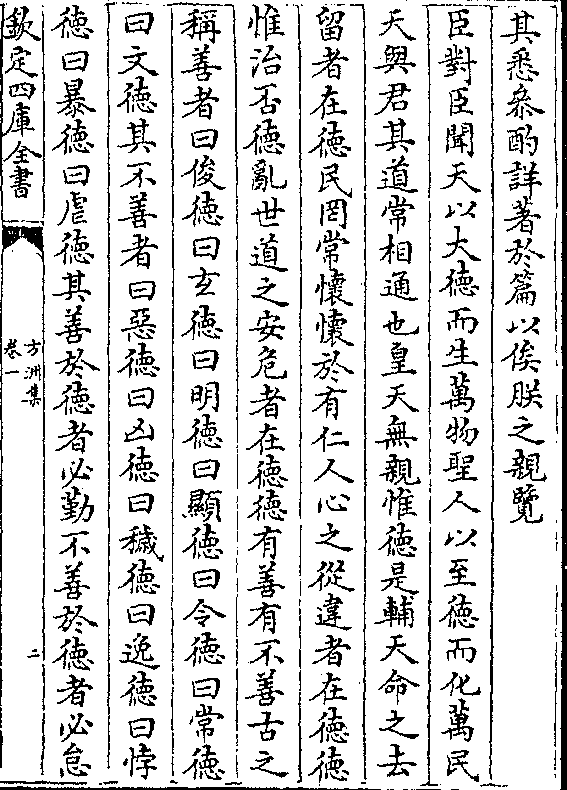 其悉叅酌詳著於篇以俟朕之親覽
臣對臣聞天以大徳而生萬物聖人以至徳而化萬民
天與君其道常相通也皇天無親惟徳是輔天命之去
留者在徳民罔常懷懷於有仁人心之從違者在徳徳
惟治否徳亂世道之安危者在徳徳有善有不善古之
稱善者曰俊徳曰玄徳曰明徳曰顯徳曰令徳曰常徳
曰文徳其不善者曰惡徳曰凶徳曰穢徳曰逸徳曰悖
徳曰暴徳曰虐徳其善於徳者必勤不善於徳者必怠
欽定四庫全書
方洲集
卷一
二